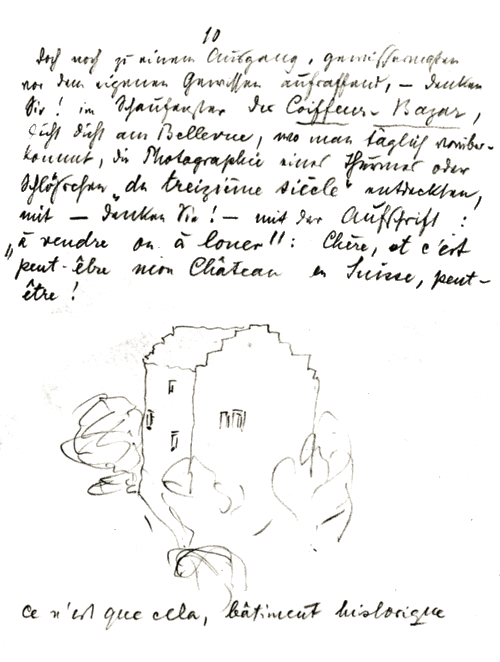 10
doch noch zu einem Ausgang, gewissermaßen
vor dem eigenen Gewissen aufraffend, – denken
Sie! im Schaufenster des Coiffeur-Bazar,
dicht dicht am Bellevue, wo man täglich vorüber-
kommt, die Photographie eines Thurmes oder
Schlößchen „du treizième siècle“ entdeckten,
mit – denken Sie! – mit der Aufschrift:
„à vendre ou à louer“!: Chère, et c'est
peut-être mon Château en Suisse, peut-
être!
ce n'est que cela, bâtiment historique